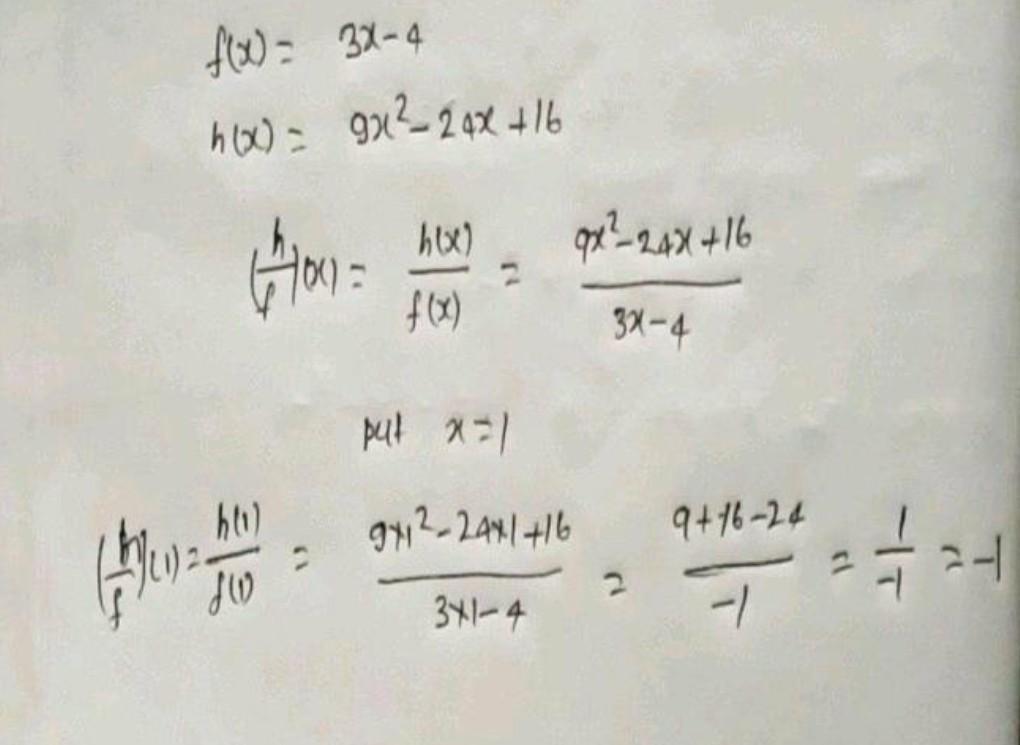 f(x) = 3x-4
h(x) = 9x²-24x+16
(h/f)(x) = h(x)/f(x) = (9x²-24x+16)/(3x-4)
put x=1
(h/f)(1) = h(1)/f(1) = (9×1²-24×1+16)/(3×1-4) = (9+16-24)/-1 = 1/-1 = -1